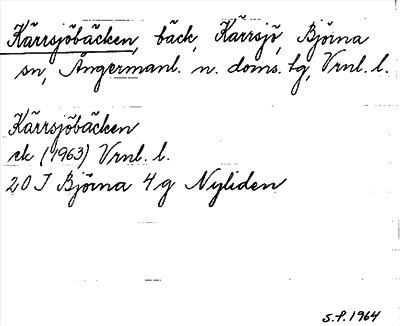 Kärrsjöbäcken, bäck, Kärrsjö, Björna
sn, Ångermanl. n. doms. tg, Vrnl. l.
Kärrsjöbäcken
ek (1963) Vrnl. l.
20 J Björna 4 g Nyliden
S.F. 1964